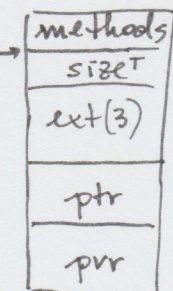 methods
sizeᵀ
ext(3)
ptr
prr